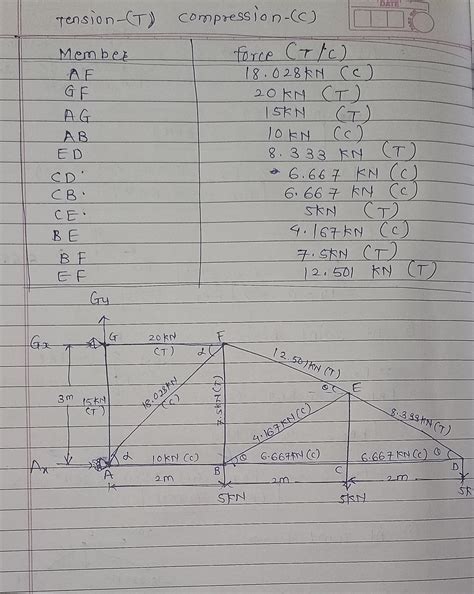 DATE
Tension-(T) compression-(C)
Member Force (T/C)
AF 18.028KN (C)
GF 20KN (T)
AG 15KN (T)
AB 10KN (C)
ED 8.333 KN (T)
CD 6.667 KN (C)
CB 6.667 KN (C)
CE 5KN (T)
BE 4.167KN (C)
BF 7.5KN (T)
EF 12.501 KN (T)
Gy
Gx G 20KN F
(T) α
12.501KN(T)
θ E
3m 15KN (T) 18.028KN (C) 7.5KN(T) 4.167KN(C) 8.333KN(T)
Ax α 10KN(C) θ 6.667KN(C) 6.667KN(C) θ
A B C D
2m 2m 2m
5KN 5KN 5K